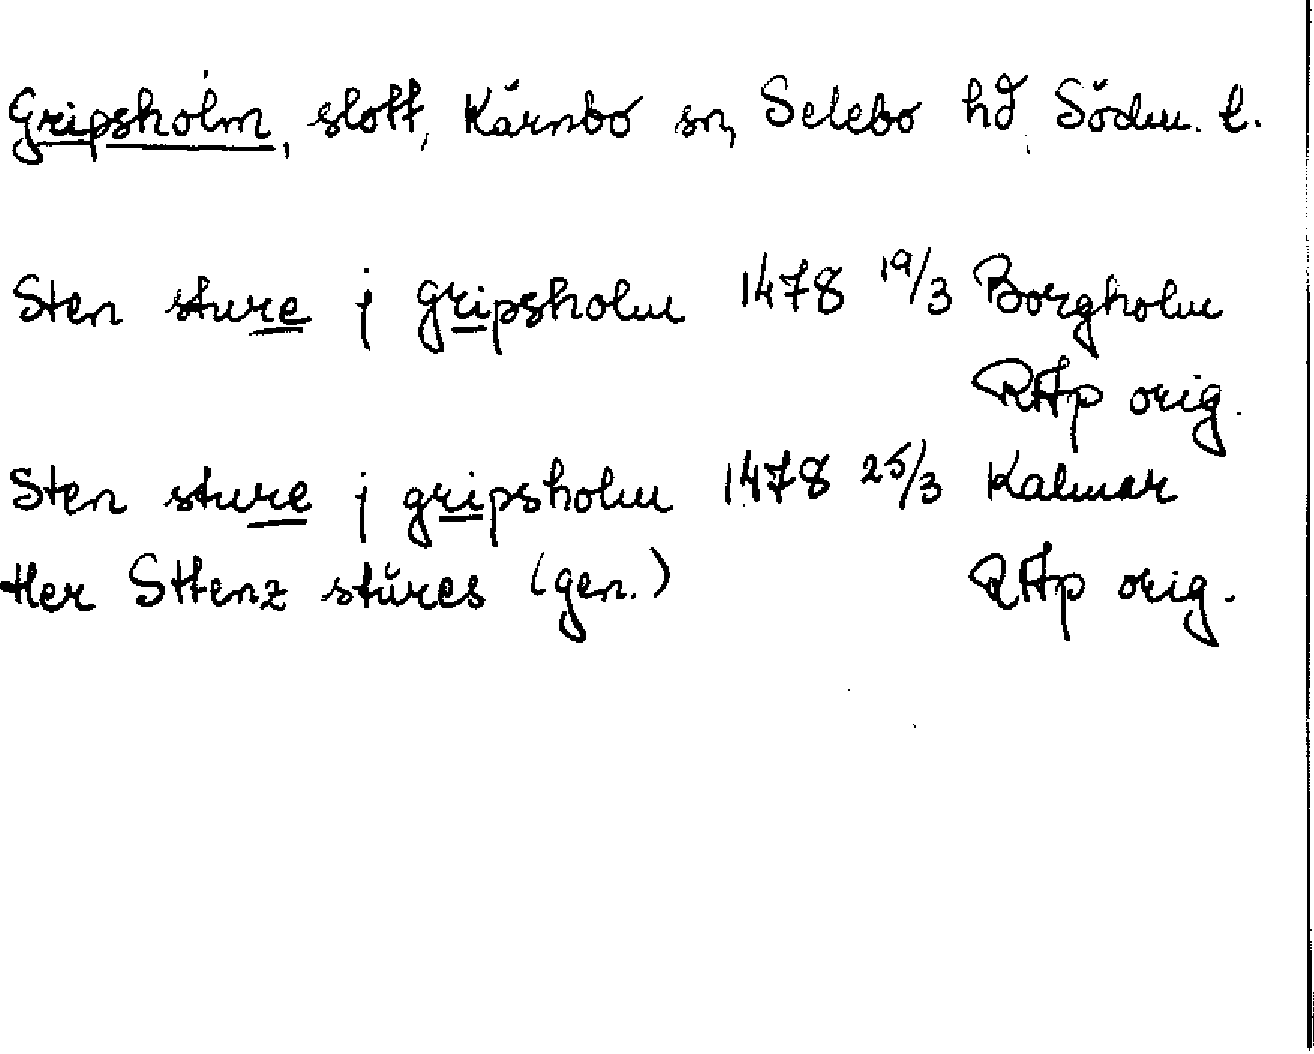 Gripsholm, slott, Kärnbo sn, Selebo hd, Södm. l.
Sten sture j gripsholm 1478 19/3 Borgholm
RAp orig.
Sten sture j gripsholm 1478 25/3 Kalmar
Her Sttenz stŭres (gen.) RAp orig.